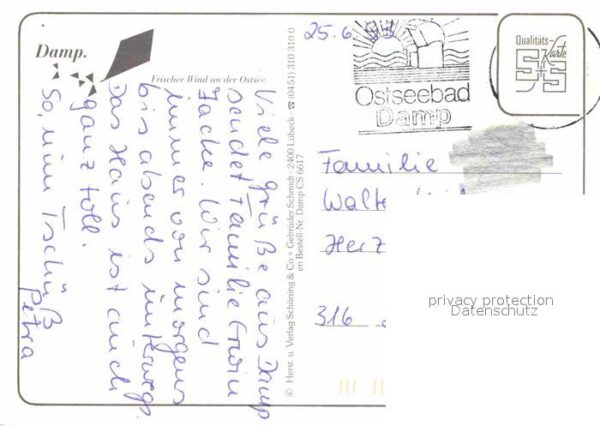 Damp.
Frischer Wind an der Ostsee.
Viele Grüße aus Damp
sendet Familie Erwin
Jache. Wir sind
immer von morgens
bis abends unterwegs
Das Haus ist auch
ganz toll.
So, nun Tschüß
Petra
© Herst. u. Verlag Schöning & Co + Gebrüder Schmidt · 2400 Lübeck · ☎ (0451) 310 310 0
en Bestell-Nr. Damp CS 6617
25.6
Ostseebad
Damp
Qualitäts-
Karte
S+S
Familie
Walte
Herz
316
privacy protection
Datenschutz